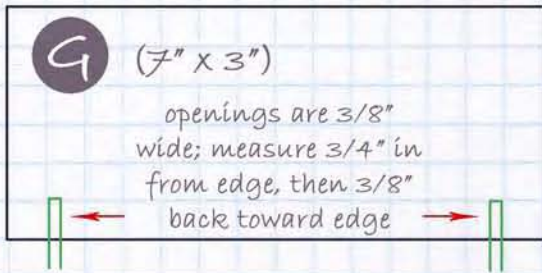 G (7" x 3")
openings are 3/8"
wide; measure 3/4" in
from edge, then 3/8"
back toward edge